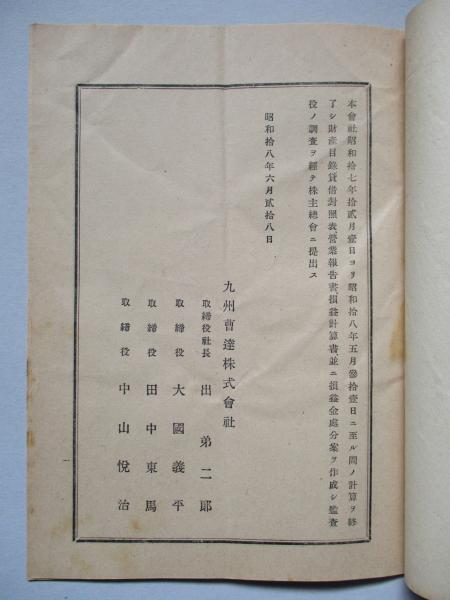 本會社昭和拾七年拾貳月壹日ヨリ昭和拾八年五月參拾壹日ニ至ル間ノ計算ヲ終
了シ財產目錄、貸借對照表、營業報告書、損益計算書、並ニ損益金處分案ヲ作成シ監査
役ノ調査ヲ經テ株主總會ニ提出ス
昭和拾八年六月貳拾八日
九州曹達株式會社
取締役社長 出弟二郎
取締役 大國義平
取締役 田中東馬
取締役 中山悅治
一